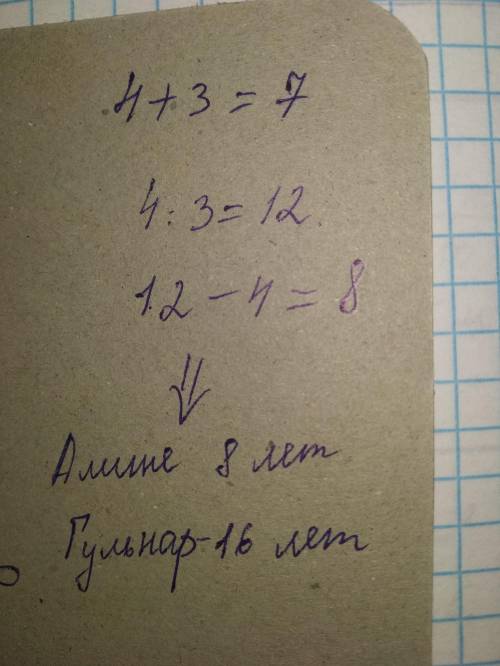 4+3=7
4:3=12
12-4=8
⇓
Алине 8 лет
Гульнар-16 лет